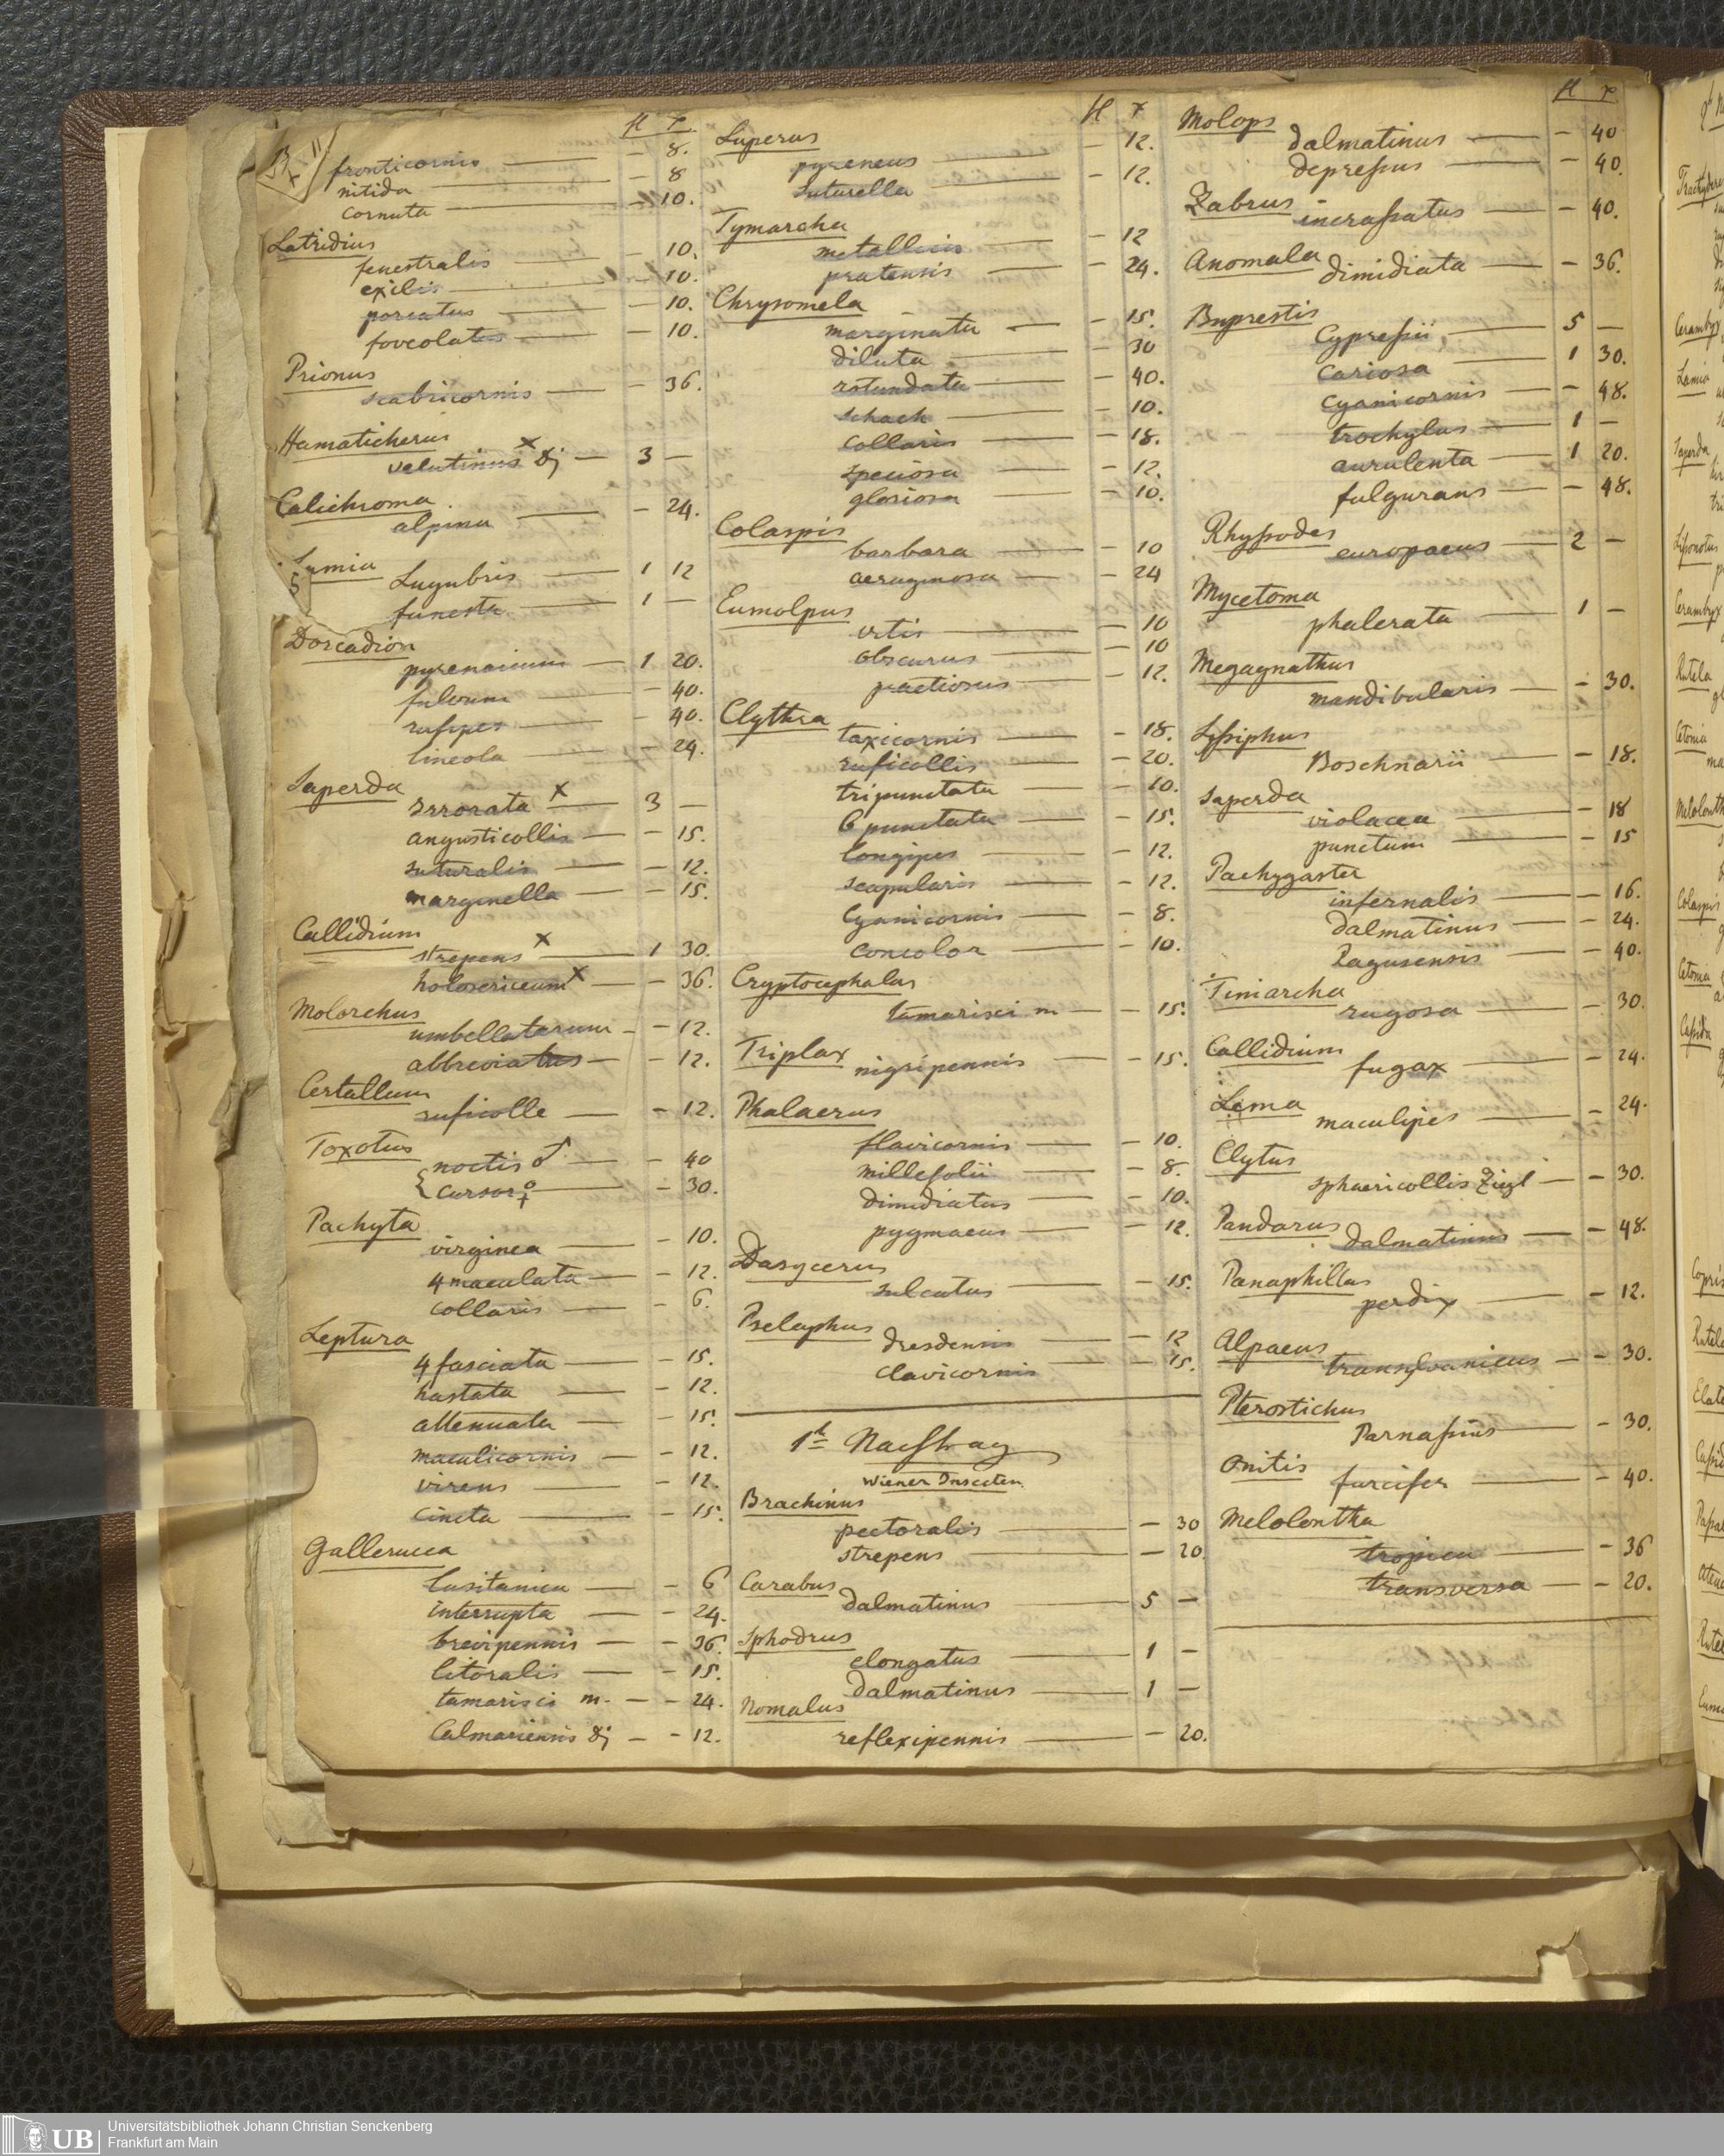 fl x
fronticornis — - 8.
nitida — - 8
cornuta — - 10.
Latridius
fenestralis — - 10.
exilis — - 10.
porcatus — - 10.
foveolatus — - 10.
Prionus
scabricornis — - 36.
Hamaticherus
velutinus x Dj — 3 —
Calichroma
alpina — - 24.
Lamia
Lugubris — 1 12
funesta — 1 —
Dorcadion
pyrenaicum — 1 20.
fulvum — - 40.
rufipes — - 40.
lineola — - 24.
Saperda
irrorata x — 3 —
angusticollis — - 15.
suturalis — - 12.
marginella — - 15.
Callidium
strepens x — 1 30.
holosericeum x — - 36.
Molorchus
umbellatarum - - 12.
abbreviatus — - 12.
Certallum
ruficolle — - 12.
Toxotus
noctis ♂ — - 40
{ cursor ♀ — - 30.
Pachyta
virginea — - 10.
4 maculata — - 12.
collaris — - 6.
Leptura
4 fasciata — - 15.
hastata — - 12.
attenuata — - 15.
maculicornis — - 12.
virens — - 12.
cincta — - 15.
Gallerucca
lusitanica — - 6
interrupta — - 24.
brevipennis — - 36.
litoralis — - 15.
tamarisci m. — - 24.
Calmariensis Dj — - 12.
fl x
Luperus
pyreneus — - 12.
suturella — - 12.
Tymarcha
metallica — - 12
pratensis — - 24.
Chrysomela
marginata — - 15.
diluta — - 30
rotundata — - 40.
schach — - 10.
collaris — - 18.
speciosa — - 12.
gloriosa — - 10.
Colaspis
barbara — - 10
aeruginosa — - 24
Eumolpus
vitis — - 10
obscurus — - 10
praetiosus — - 12.
Clythra
taxicornis — - 18.
ruficollis — - 20.
tripunctata — - 10.
6 punctata — - 15.
longipes — - 12.
scapularis — - 12.
Cyanicornis — - 8.
concolor — - 10.
Cryptocephalus
tamarisci m — - 15.
Triplax
nigripennis — - 15.
Phalacrus
flavicornis — - 10.
millefolii — - 8.
dimidiatus — - 10.
pygmaeus — - 12.
Dasycerus
sulcatus — - 15.
Pselaphus
dresdensis — - 12
clavicornis — - 15.
1th Nachtrag
Wiener Insecten
Brachinus
pectoralis — - 30
strepens — - 20.
Carabus
dalmatinus — 5 —
Sphodrus
elongatus — 1 -
dalmatinus — 1 -
Nomalus
reflexipennis — - 20.
fl x
Molops
dalmatinus — - 40
depressus — - 40.
Zabrus
incrassatus — - 40.
Anomala
dimidiata — - 36.
Buprestis
Cypressii, — 5 —
cariosa — 1 30.
cyanicornis — - 48.
trochylus — 1 —
aurulenta — 1 20.
fulgurans — - 48.
Rhyssodes
europaeus — 2 —
Mycetoma
phalerata — 1 -
Megagnathus
mandibularis — - 30.
Sissiphus
Boschnarii — - 18.
Saperda
violacea — - 18
punctum — - 15
Pachygaster
infernalis — - 16.
dalmatinus — - 24.
Ragusensis — - 40.
Timarcha
rugosa — - 30.
Callidium
fugax — - 24.
Lema
maculipes — - 24.
Clytus
sphaericollis Ziegl — - 30.
Pandarus
dalmatinus — - 48.
Panaphillus
perdix — - 12.
Alpaeus
transylvanicus — - 30.
Pterostichus
Parnassius — - 30.
Onitis
furcifer — - 40.
Melolontha
tropica — - 36
transversa — - 20.
Cerambyx
Lamia
Saperda
Cerambyx
Rutela
Cetonia
Colaspis
Cetonia
Cassida
Copris
UB
Universitätsbibliothek Johann Christian Senckenberg
Frankfurt am Main